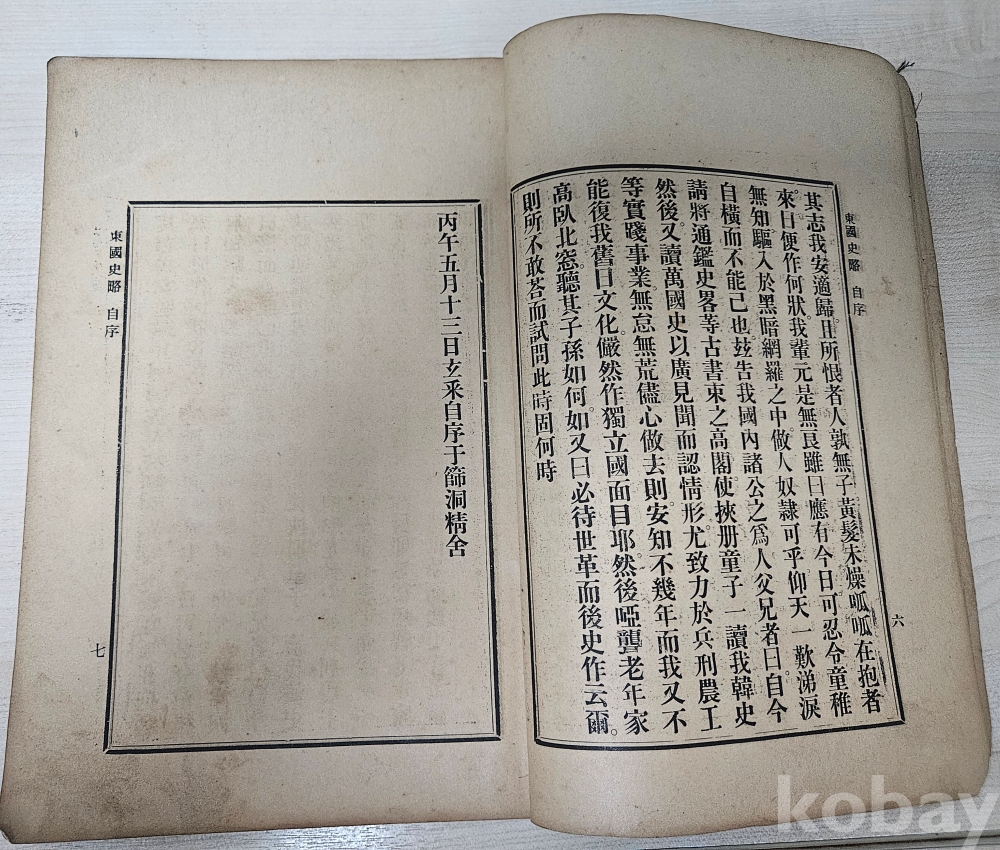 東國史略 自序
六
其志我安適歸且所恨者人孰無子黃髮未燥呱呱在抱者
來日便作何狀我輩元是無良雖曰應有今日可忍令童稚
無知驅入於黑暗網羅之中做人奴隷可乎仰天一歎涕淚
自橫而不能已也玆告我國內諸公之爲人父兄者曰自今
請將通鑑史畧等古書束之高閣使挾册童子一讀我韓史
然後又讀萬國史以廣見聞而認情形尤致力於兵刑農工
等實踐事業無怠無荒儘心做去則安知不幾年而我又不
能復我舊日文化儼然作獨立國面目耶然後啞聾老年家
高臥北窓聽其子孫如何如又曰必待世革而後史作云爾
則所不敢荅而試問此時固何時
丙午五月十三日玄釆自序于篩洞精舍
東國史略 自序
七
kobay